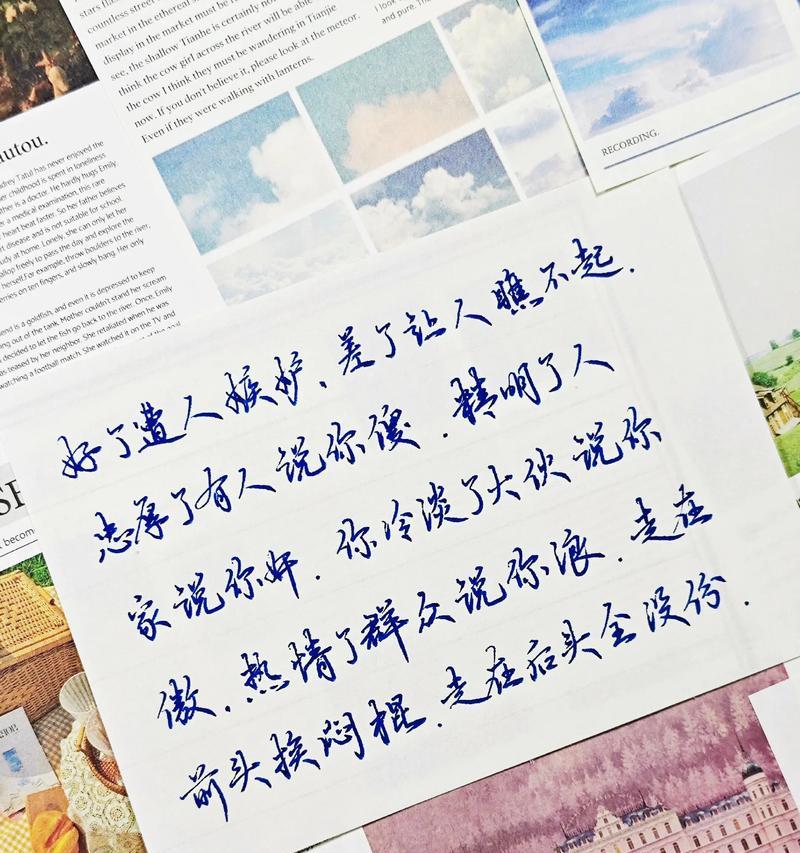 stars fla
countless street
market in the ethereal s
display in the market must be r
see, the shallow Tianhe is certainly no
think the cow girl across the river will be able
the cow I think they must be wandering in Tianjie
now. If you don't believe it, please look at the meteor.
Even if they were walking with lanterns.
I look
and pure. Th
RECORDING.
utou.
drey Tatul has never enjoyed the
er childhood is spent in loneliness
ther is a doctor. He hardly hugs Emily.
er a medical examination, this rare
heart beat faster. So her father believes
rt disease and is not suitable for school.
udy at home. Lonely, she can only let her
allop freely to pass the day and explore the
herself.For example, throw boulders to the river,
erries on ten fingers, and slowly hang. Her only
end is a goldfish, and even it is depressed to keep
ing out of the tank. Mother couldn't stand her scream
decided to let the fish go back to the river. Once, Emily
was teased by her neighbor. She retaliated when he was
watching a football match. She watched it on the TV and
好了遭人嫉妒.差了让人瞧不起.
忠厚了有人说你傻.精明了人
家说你奸.你冷淡了大伙说你
傲.热情了群众说你浪.走在
前头挨闷棍.走在后头全没份.
t become